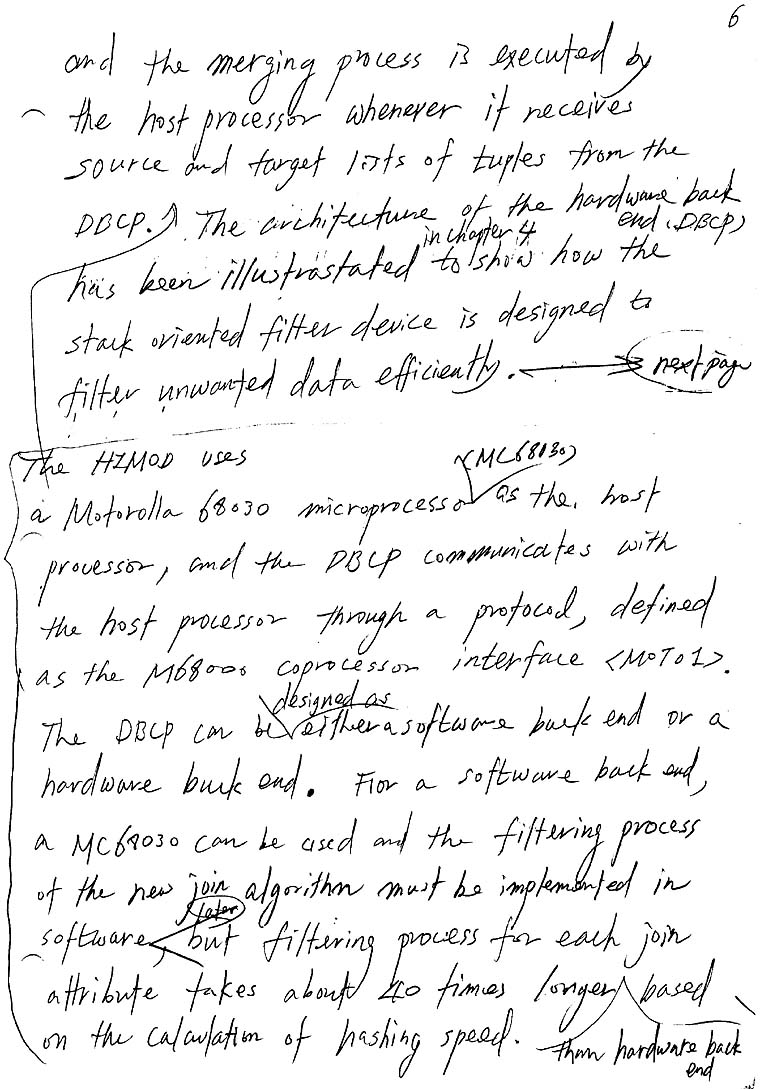 6
and the merging process is executed by
the host processor whenever it receives
source and target lists of tuples from the
DBCP. The architecture of the hardware back
end (DBCP)
in chapter 4
has been illustrastated to show how the
stack oriented filter device is designed to
filter unwanted data efficiently.
next page
The HIMOD uses
(MC68030)
a Motorolla 68030 microprocessor as the host
processor, and the DBCP communicates with
the host processor through a protocol, defined
as the M68000 coprocessor interface <MOTO1>.
designed as
The DBCP can be either a software back end or a
hardware back end. For a software back end,
a MC68030 can be used and the filtering process
of the new join algorithm must be implemented in
later
software, but filtering process for each join
attribute takes about 40 times longer based
on the calculation of hashing speed.
than hardware back
end